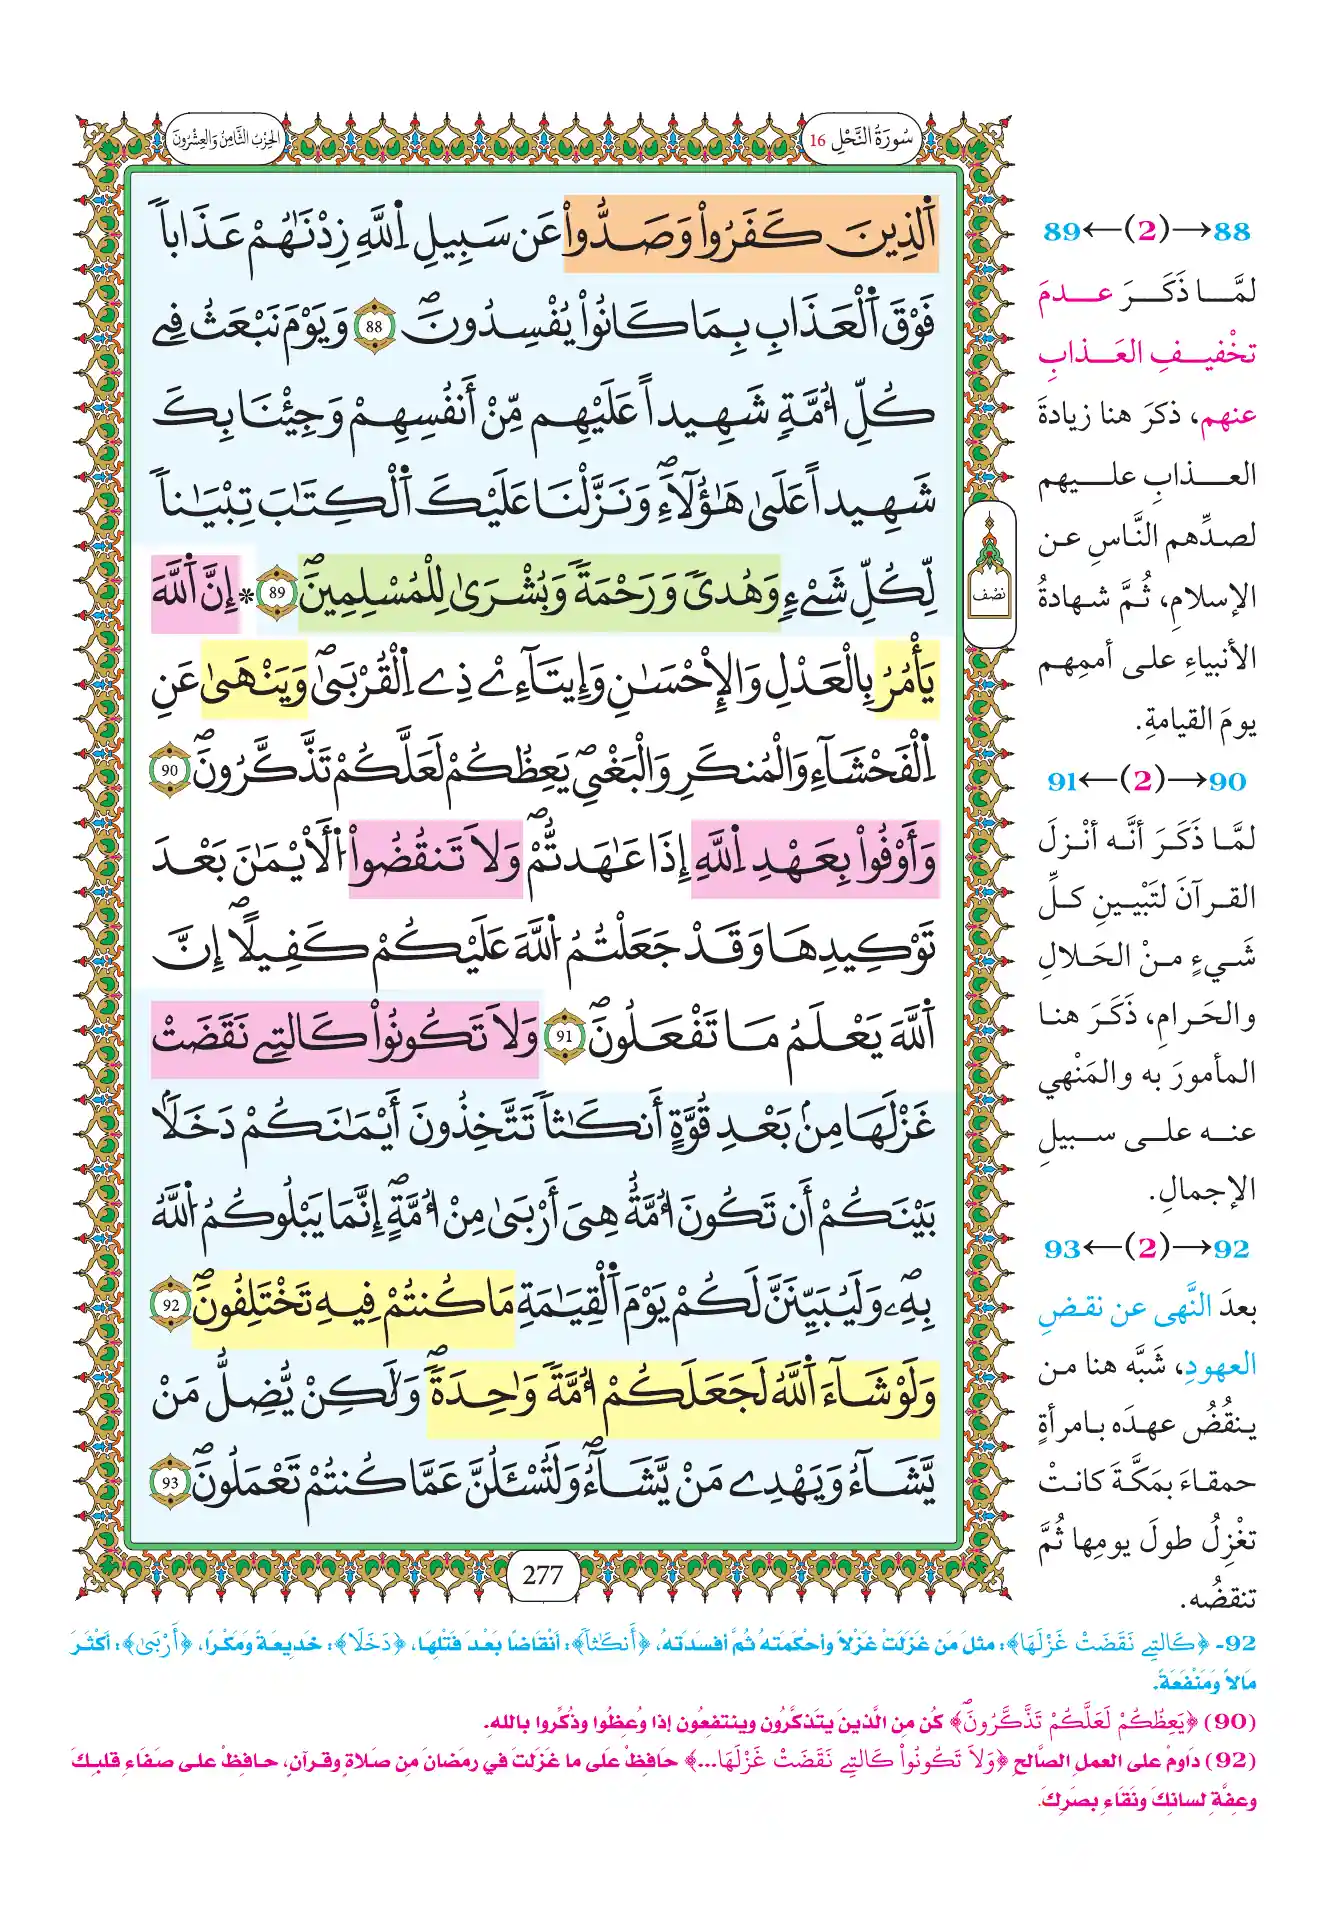 سُورَةُ النَّحْلِ 16
الحِزْبُ الثَّامِنُ وَالعِشْرُونَ
اَ۬لذِينَ كَفَرُواْ وَصَدُّواْ عَن سَبِيلِ اِ۬للَّهِ زِدْنَٰهُمْ عَذَاباٗ
فَوْقَ اَ۬لْعَذَابِ بِمَا كَانُواْ يُفْسِدُونَۖ 88 وَيَوْمَ نَبْعَثُ فِے
كُلِّ أُمَّةٖ شَهِيداً عَلَيْهِم مِّنْ أَنفُسِهِمْ وَجِئْنَا بِكَ
شَهِيداً عَلَىٰ هَٰٓؤُلَآءِۖ وَنَزَّلْنَا عَلَيْكَ اَ۬لْكِتَٰبَ تِبْيَٰناٗ
لِّكُلِّ شَےْءٖ وَهُدىٗ وَرَحْمَةٗ وَبُشْرَىٰ لِلْمُسْلِمِينَۖ 89 * إِنَّ اَ۬للَّهَ
يَأْمُرُ بِالْعَدْلِ وَالِاحْسَٰنِ وَإِيتَآءِےْ ذِے اِ۬لْقُرْبَىٰۖ وَيَنْهَىٰ عَنِ
اِ۬لْفَحْشَآءِ وَالْمُنكَرِ وَالْبَغْيِۖ يَعِظُكُمْ لَعَلَّكُمْ تَذَّكَّرُونَۖ 90
وَأَوْفُواْ بِعَهْدِ اِ۬للَّهِ إِذَا عَٰهَدتُّمْۖ وَلَا تَنقُضُواْ اُ۬لَايْمَٰنَ بَعْدَ
تَوْكِيدِهَا وَقَدْ جَعَلْتُمُ اُ۬للَّهَ عَلَيْكُمْ كَفِيلاًۖ اِنَّ
اَ۬للَّهَ يَعْلَمُ مَا تَفْعَلُونَۖ 91 وَلَا تَكُونُواْ كَالتِے نَقَضَتْ
غَزْلَهَا مِنۢ بَعْدِ قُوَّةٍ أَنكَٰثاٗ تَتَّخِذُونَ أَيْمَٰنَكُمْ دَخَلَاۢ
بَيْنَكُمْ أَن تَكُونَ أُمَّةٌ هِيَ أَرْبَىٰ مِنْ أُمَّةٍۖ اِنَّمَا يَبْلُوكُمُ اُ۬للَّهُ
بِهِۦ وَلَيُبَيِّنَنَّ لَكُمْ يَوْمَ اَ۬لْقِيَٰمَةِ مَا كُنتُمْ فِيهِ تَخْتَلِفُونَۖ 92
وَلَوْ شَآءَ اَ۬للَّهُ لَجَعَلَكُمْ أُمَّةٗ وَٰحِدَةٗۖ وَلَٰكِنْ يُّضِلُّ مَنْ
يَّشَآءُ وَيَهْدِے مَنْ يَّشَآءُۖ وَلَتُسْـَٔلُنَّ عَمَّا كُنتُمْ تَعْمَلُونَۖ 93
نصف
277
88→(2)←89
لمَّا ذَكَرَ عدمَ
تخْفيفِ العَذابِ
عنهم، ذكرَ هنا زيادةَ
العذابِ عليهم
لصدِّهم النَّاسِ عن
الإسلامِ، ثُمَّ شهادةُ
الأنبياءِ على أممِهم
يومَ القيامةِ.
90→(2)←91
لمَّا ذَكَرَ أنَّه أنْزلَ
القرآنَ لتَبْيينِ كلِّ
شَيءٍ منْ الحَلالِ
والحَرامِ، ذَكَرَ هنا
المأمورَ به والمَنْهي
عنه على سبيلِ
الإجمالِ.
92→(2)←93
بعدَ النَّهى عن نقضِ
العهودِ، شَبَّه هنا من
ينقُضُ عهدَه بامرأةٍ
حمقاءَ بمَكَّةَ كانتْ
تغْزِلُ طولَ يومِها ثُمَّ
تنقضُه.
92- ﴿كَالتِے نَقَضَتْ غَزْلَهَا﴾: مثلَ مَن غَزَلَتْ غَزْلاً وأحْكَمَتهُ ثُمَّ أفسَدَتهُ، ﴿أَنكَٰثاٗ﴾: أنْقَاضًا بَعْدَ فَتْلِهَا، ﴿دَخَلَاۢ﴾: خَدِيعَةً وَمَكْرًا، ﴿أَرْبَىٰ﴾: أكْثَرَ
مَالاً وَمَنْفَعَةً.
(90) ﴿يَعِظُكُمْ لَعَلَّكُمْ تَذَّكَّرُونَۖ﴾ كُن من الَّذينَ يتَذكَّرُون وينتفعُون إذا وُعِظُوا وذُكِّروا بالله.
(92) دَاومْ على العملِ الصَّالحِ ﴿وَلَا تَكُونُواْ كَالتِے نَقَضَتْ غَزْلَهَا...﴾ حَافِظْ عَلى ما غَزَلتَ في رمضانَ مِن صَلاةٍ وقرآنٍ، حافِظْ على صَفَاءِ قلبِكَ
وعِفَّةِ لسانِكَ ونَقَاءِ بصَرِكَ.